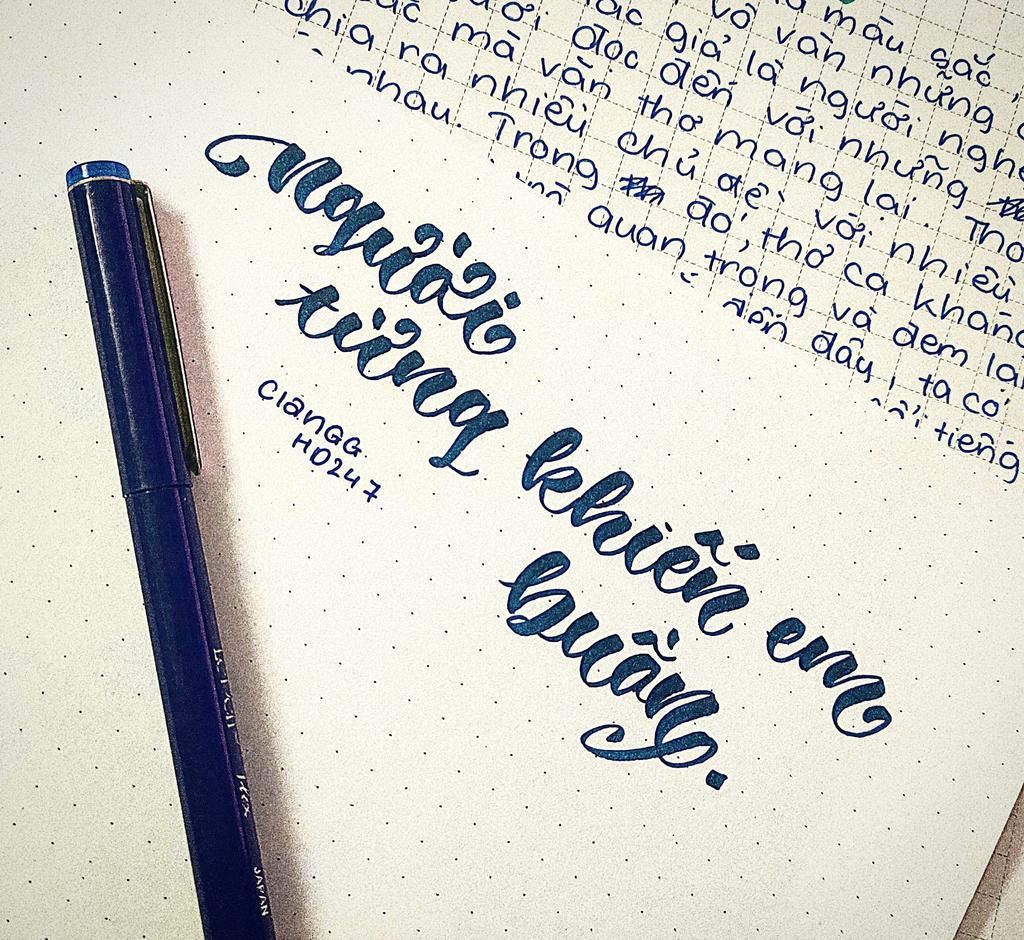 màu sắc,
vô vàn những
giả là người nghe
người đọc đến với những
mà văn thơ mang lại. Thơ
chia ra nhiều chủ đề với nhiều
nhau. Trong đó, thơ ca kháng
quan trọng và đem lại
đến đây, ta có
nổi tiếng
Người
từng
khiến em
buồn.
CIANGG
HD247
Le Pen
Flex
JAPAN